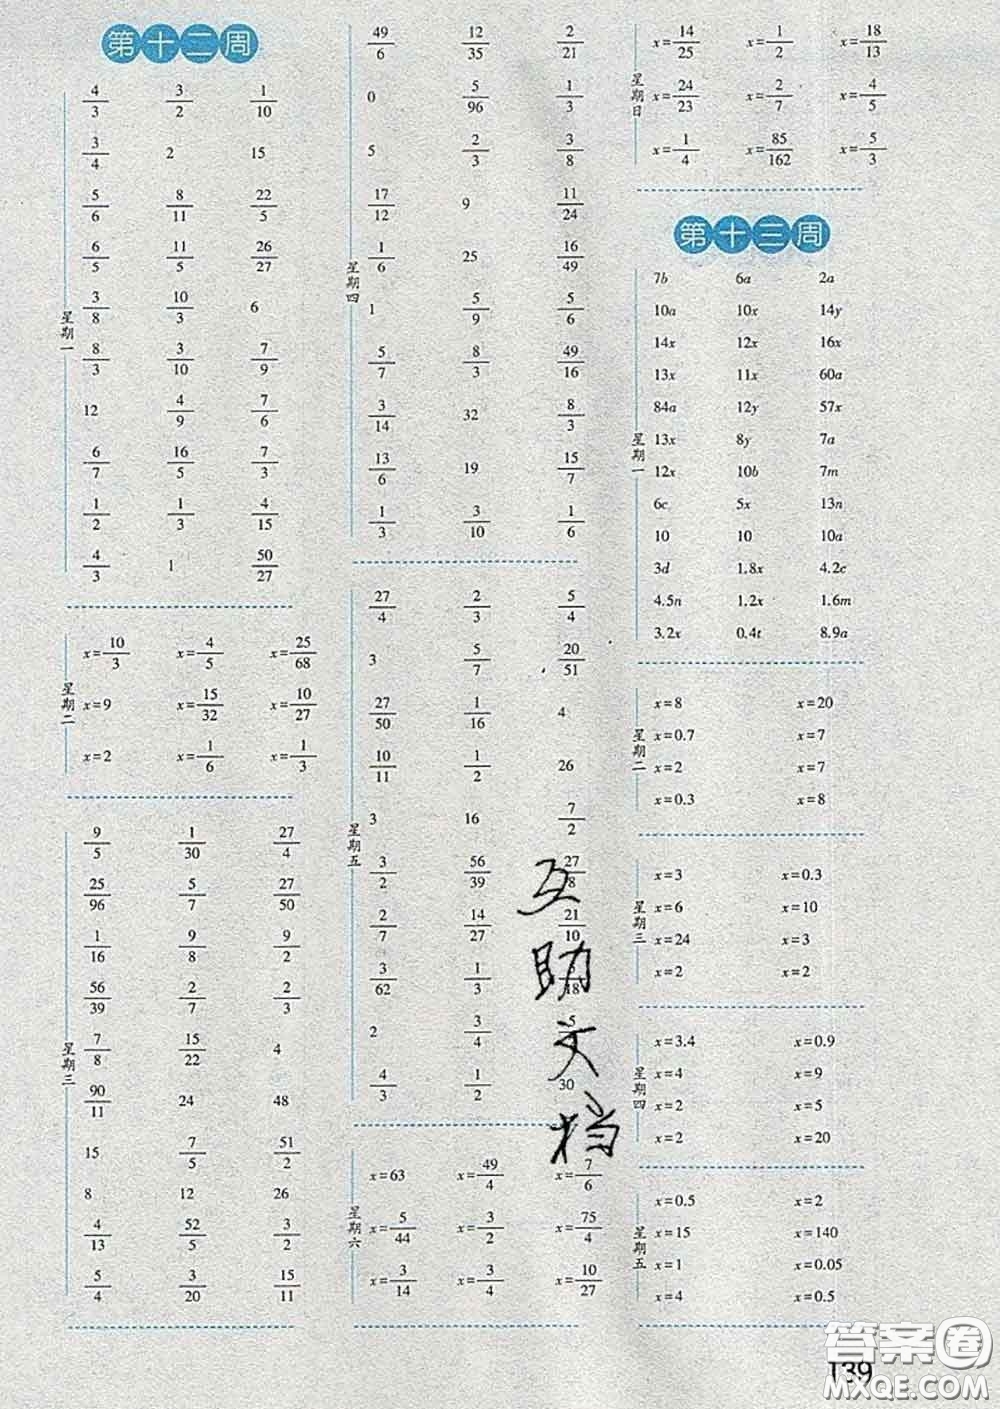 第十二周
星期一
4/3 3/2 1/10
3/4 2 15
5/6 8/11 22/5
6/5 11/5 26/27
3/8 10/3 6
8/3 3/10 7/9
12 4/9 7/6
6/7 16/5 7/3
1/2 1/3 4/15
4/3 1 50/27
星期二
x=10/3 x=4/5 x=25/68
x=9 x=15/32 x=10/27
x=2 x=1/6 x=1/3
星期三
9/5 1/30 27/4
25/96 5/7 27/50
1/16 9/8 9/2
56/39 2/7 2/3
7/8 15/22 4
90/11 24 48
15 7/5 51/2
8 12 26
4/13 52/5 3/2
5/4 3/20 15/11
星期四
49/6 12/35 2/21
0 5/96 1/3
5 2/3 3/8
17/12 9 11/24
1/6 25 16/49
1 5/9 5/6
5/7 8/3 49/16
3/14 32 8/3
13/6 19 15/7
1/3 3/10 1/6
星期五
27/4 2/3 5/4
3 5/7 20/51
27/50 1/16 4
10/11 1/2 26
3 16 7/2
3/2 56/39 27/8
2/7 14/27 21/10
3/62 1/3 /18
2 3/4 5/
4/3 1/2 30
星期六
x=63 x=49/4 x=7/6
x=5/44 x=3/2 x=75/4
x=3/14 x=3/4 x=10/27
星期日
x=14/25 x=1/2 x=18/13
x=24/23 x=2/7 x=4/5
x=1/4 x=85/162 x=5/3
第十三周
星期一
7b 6a 2a
10a 10x 14y
14x 12x 16x
13x 11x 60a
84a 12y 57x
13x 8y 7a
12x 10b 7m
6c 5x 13n
10 10 10a
3d 1.8x 4.2c
4.5n 1.2x 1.6m
3.2x 0.4t 8.9a
星期二
x=8 x=20
x=0.7 x=7
x=2 x=7
x=0.3 x=8
星期三
x=3 x=0.3
x=6 x=10
x=24 x=3
x=2 x=2
星期四
x=3.4 x=0.9
x=4 x=9
x=2 x=5
x=2 x=20
星期五
x=0.5 x=2
x=15 x=140
x=1 x=0.05
x=4 x=0.5
互助文档
139
答案圈
MXQE.COM